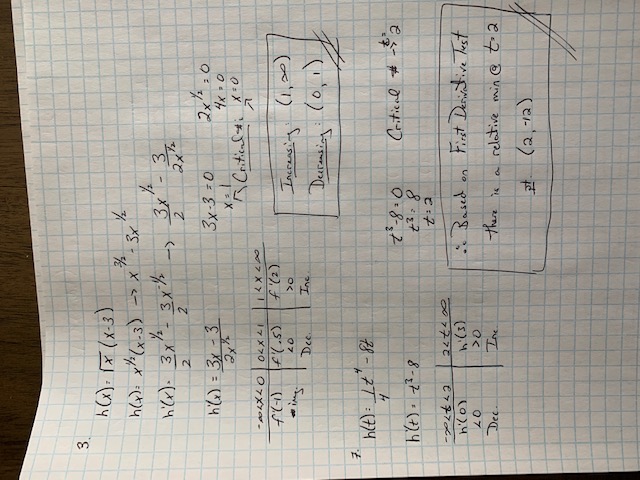 3.
h(x) = √x (x-3)
h(x) = x^1/2 (x-3) → x^3/2 - 3x^1/2
h'(x) = 3x^1/2 / 2 - 3x^-1/2 / 2 → 3x^1/2 / 2 - 3 / 2x^1/2
h'(x) = 3x - 3 / 2x^1/2
3x-3=0
x=1
2x^1/2 = 0
4x=0
x=0
Critical #:
-∞<x<0 | 0<x<1 | 1<x<∞
f'(-1) | f'(.5) | f'(2)
imag. | <0 | >0
Dec. | Inc
Increasing: (1, ∞)
Decreasing: (0, 1)
7.
h(t) = 1/4 t^4 - 8t
h'(t) = t^3 - 8
t^3-8=0
t^3=8
t=2
Critical # → t=2
-∞<t<2 | 2<t<∞
h'(0) | h'(3)
<0 | >0
Dec | Inc
∴ Based on First Derivative Test
there is a relative min @ t=2
(2, -12)